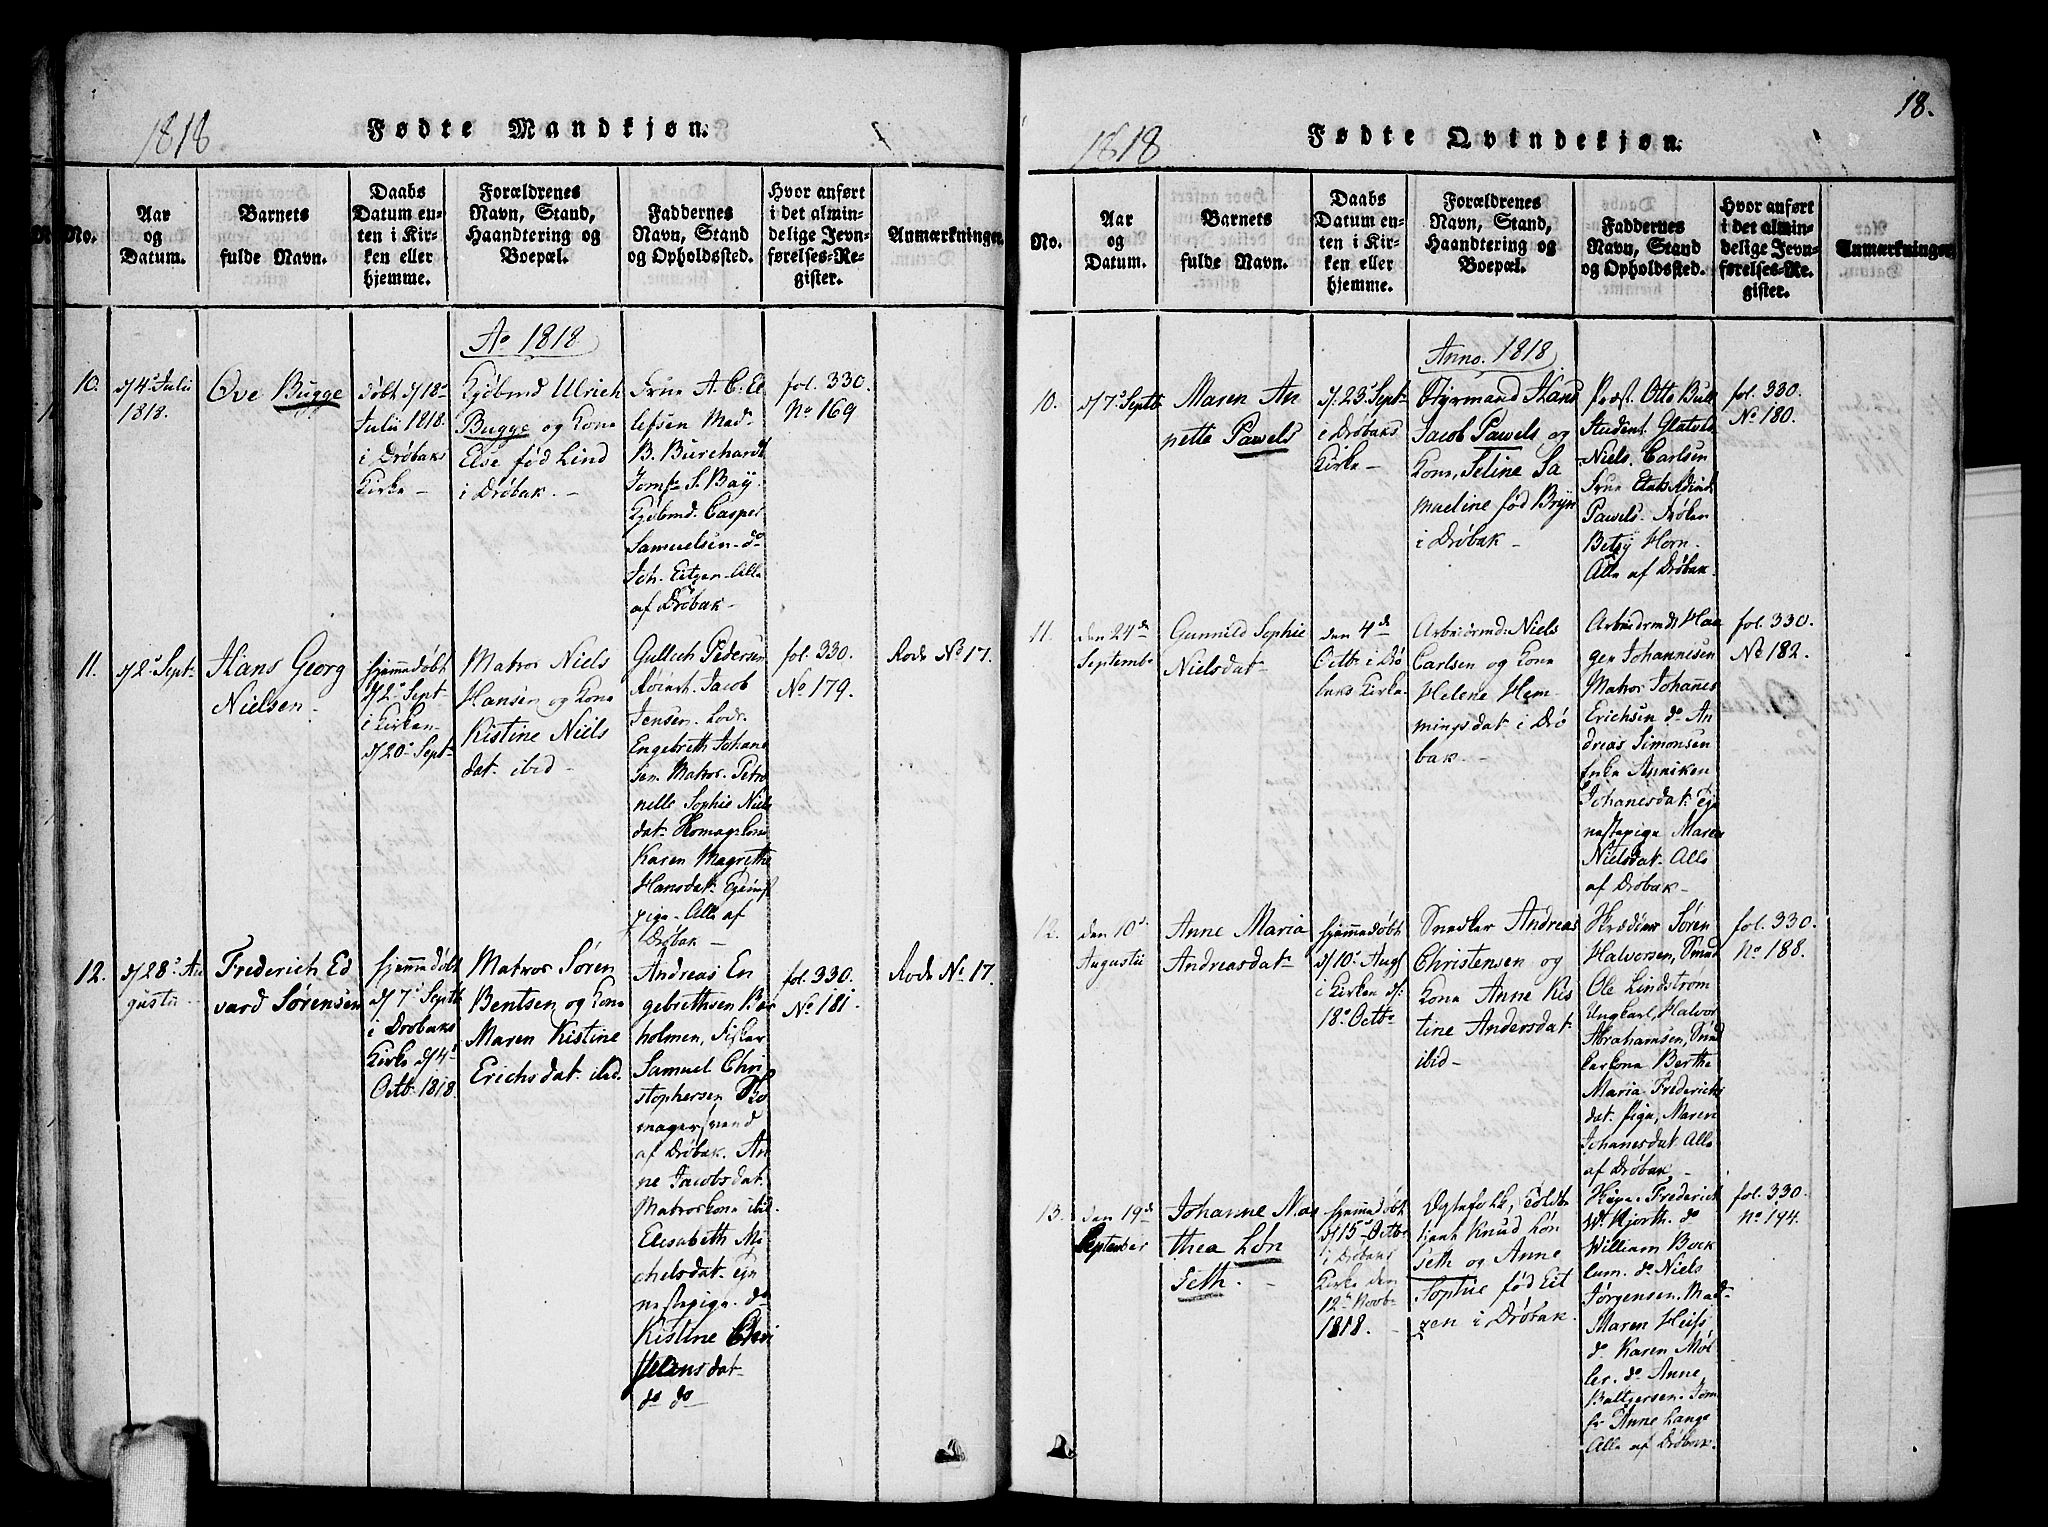 1818
Fødte Mandkjøn.
No.
Aar
og
Datum.
Barnets
fulde Navn.
Daabs
Datum en-
ten i Kir-
ken eller
hjemme.
Forældrenes
Navn, Stand,
Haandtering og
Boepæl.
Faddernes
Navn, Stand
og Opholdssted.
Hvor anført
i det almin-
delige Jevn-
førelses-Re-
gister.
Anmærkninger
Ao 1818
10.
d/4. Julii
1818.
Ove Bugge
døbt d/18.
Julii 1818.
i Drøbaks
Kirke -
Kjøbmd Ulrich
Bugge og Kone
Else fød Lind
i Drøbak. -
Frue A. C. El
lefsen Mad.
B. Burchardt
Jomfr S. Bay.
Kjøbmd. Casper
Samuelsen - do
Joh. Eitzen - Alle
af Drøbak -
fol. 330.
No 169
11.
d/2. Sept.
Hans Georg
Nielsen -
hjemmedøbt
d/2. Sept
i Kirken
d/20. Sept
Matros Niels
Hansen og Kone
Kistine Niels
dat. ibid -
Gullich Pedersen
Jacob
Jensen. Lods.
Engebreth Johane
sen. Matros. Petro
nelle Sophie Niels
dat.
Karen Magrethe
Hansdat.
pige - Alle af
Drøbak -
fol. 330.
No 179.
Rode No 17.
12.
d/28. Au
gustii -
Frederich Ed
vard Sørensen
hjemmedøbt
d/7. Septb
i Drøbaks
Kirke d/4.
Octb. 1818.
Matros Søren
Bentsen og Kone
Maren Kistine
Erichsdat. ibid.
Andreas En
gebrethsen
holmen, Fisker
Samuel Chri
stophersen
magersvend
af Drøbak. An
ne Jacobsdat.
Matroskone ibid.
Elisabeth Mi
chelsdat. Tje
nestepige. do
Kistine Chri
stensdat
do do
fol. 330.
No 181.
Rode No 17.
18.
1818
Fødte Qvindekjøn.
No.
Aar
og
Datum.
Barnets
fulde Navn.
Daabs
Datum en-
ten i Kir-
ken eller
hjemme.
Forældrenes
Navn, Stand,
Haandtering og
Boepæl.
Faddernes
Navn, Stand
og Opholdsted.
Hvor anført
i det almin-
delige Jevn-
førelses-Re-
gister.
Anmærkninger
Anno. 1818
10.
d/7. Septb
Maren An
nette Pawels
d. 23. Sept
i Drøbaks
Kirke -
Styrmand Hans
Jacob Pawels og
Kone, Seline Sa
mueline fød Bryn
i Drøbak -
Præst. Otto Bull
Student.
Niels. Carlsen
Frue
Pawels. Frøken
Betsy Horn -
Alle af Drøbak.
fol. 330.
No 180.
11.
den 24de
Septembr
Gunnild Sophie
Nielsdat
den 4de
Octb. i Drø
baks Kirke.
Arbeidsmd. Niels
Carlsen og Kone
Helene Hem
mingsdat i Drø
bak -
Arbeidsmd. Haa
gen Johannesen
Matros Johanes
Erichsen do An
dreas Simonsen
Enke Anniken
Johanesdat. Tje
nestepige Maren
Nielsdat. Alle
af Drøbak -
fol. 330.
No 182.
12.
den 10de
Augustii
Anne Maria
Andreasdat
hjemmedøbt
d/10. Aug
i Kirken d.
18. Octb
Snedker Andreas
Christensen og
Kone Anne Kis
tine Andersdat.
ibid -
Skræder Søren
Halvorsen, Smed
Ole Lindstrøm
Ungkarl, Halvor
Abrahamsen, Sned
kerkone Berthe
Maria Frederichs
dat. Pige, Maren
Johanesdat. Alle
af Drøbak -
fol. 330.
No 188.
13.
den 19de
September
Johanne Ma
thea Løn
Seth. -
hjemmedøbt
d/15. Octb
i Drøbaks
Kirke den
12. Novb
1818. -
Ægtefolk, Toldb
tjent Knud Løn
seth og Anne
Sophie fød Eit
zen i Drøbak.
Frederich
W. Hjorth. do
William Bock
lum. do Niels
Jørgensen. Mad
Maren Heifs
do Karen Møl
ler. do Anne
Baltzersen. Jom
fr Anne Lange
Alle af Drøbak.
fol. 330.
No 194.